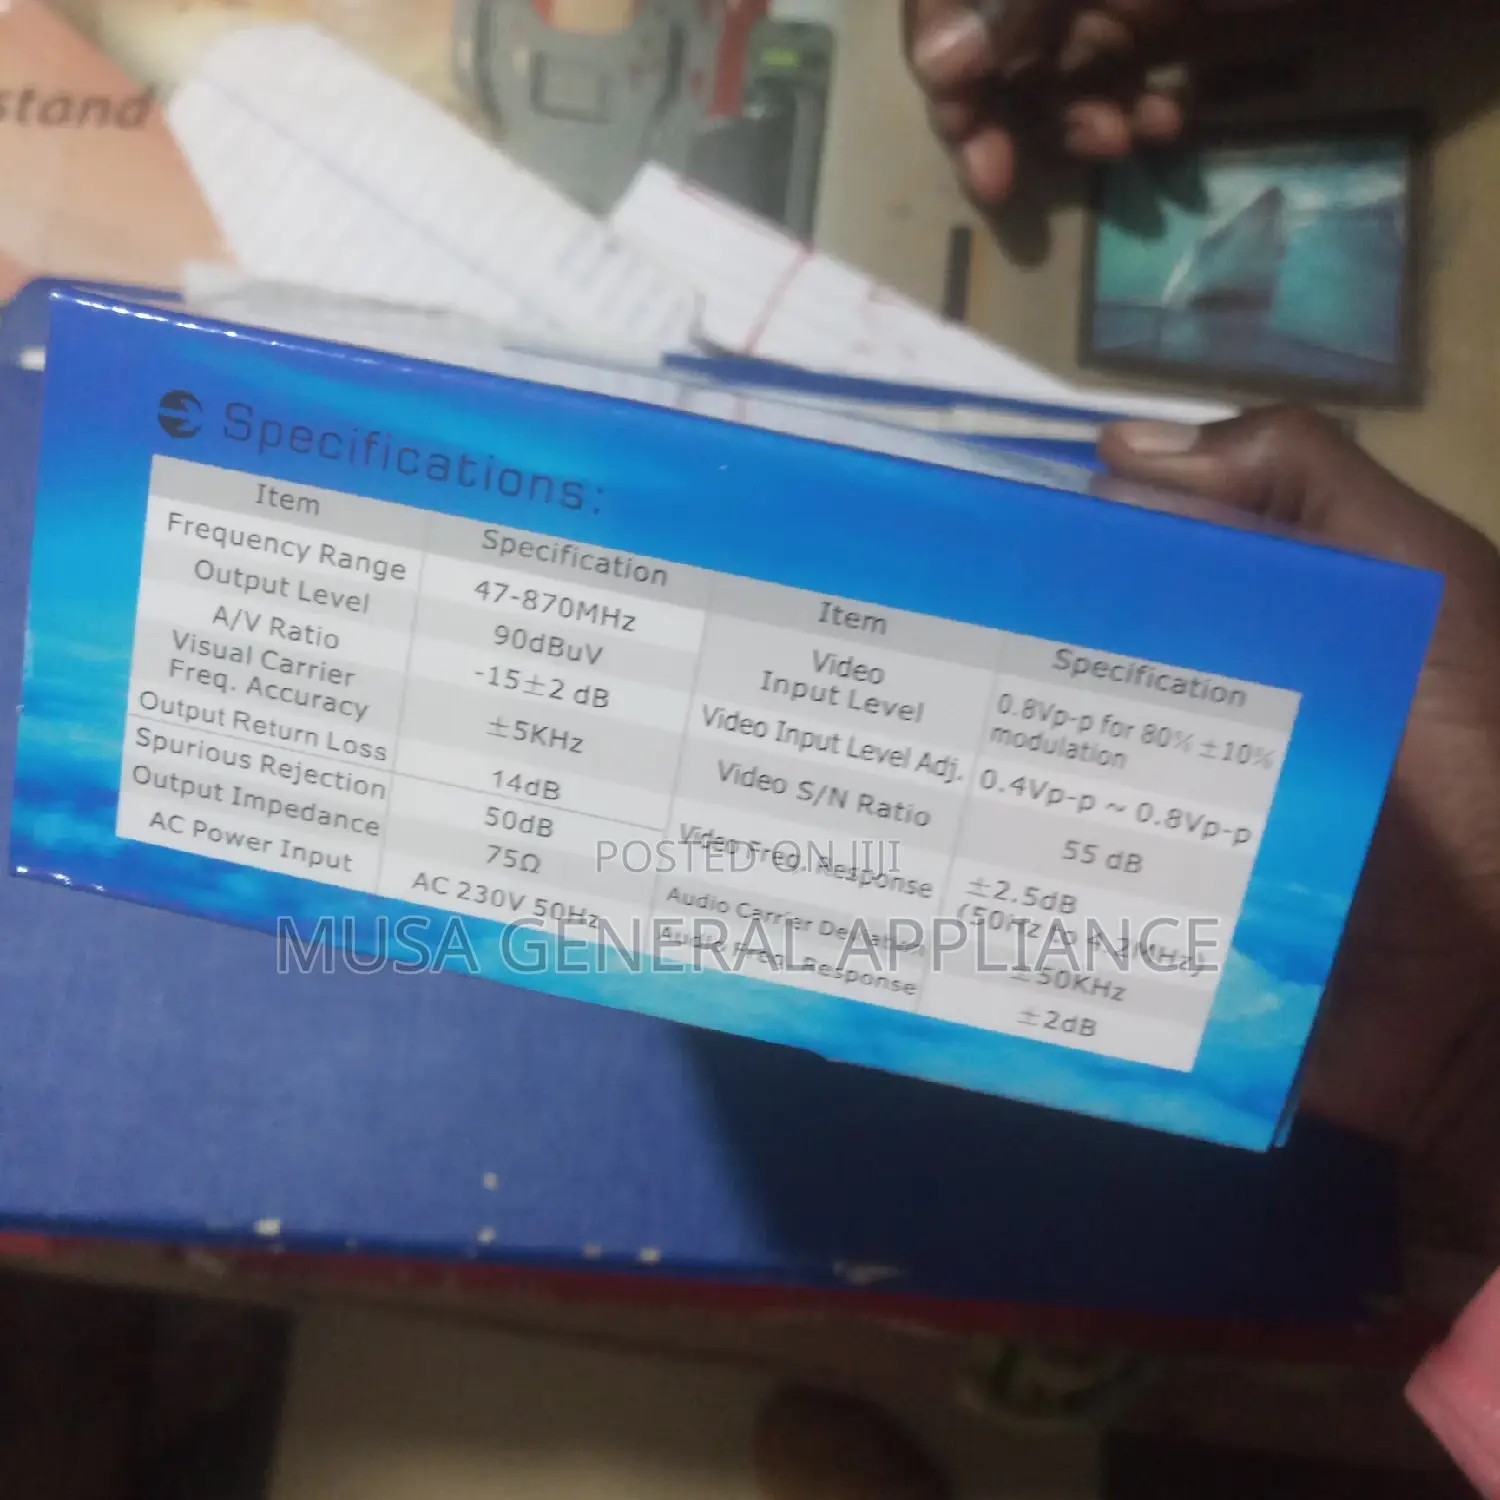 stand
Specifications:
Item
Specification
Frequency Range
47-870MHz
Output Level
90dBuV
A/V Ratio
-15±2 dB
Visual Carrier
Freq. Accuracy
±5KHz
Output Return Loss
14dB
Spurious Rejection
50dB
Output Impedance
75Ω
AC Power Input
AC 230V 50Hz
Item
Specification
Video
Input Level
0.8Vp-p for 80% ±10%
modulation
Video Input Level Adj.
0.4Vp-p ~ 0.8Vp-p
Video S/N Ratio
55 dB
Video Freq. Response
±2.5dB
(50Hz to 4.2MHz)
Audio Carrier Deviation
±50KHz
Audio Freq. Response
±2dB
POSTED ON JIJI
MUSA GENERAL APPLIANCE